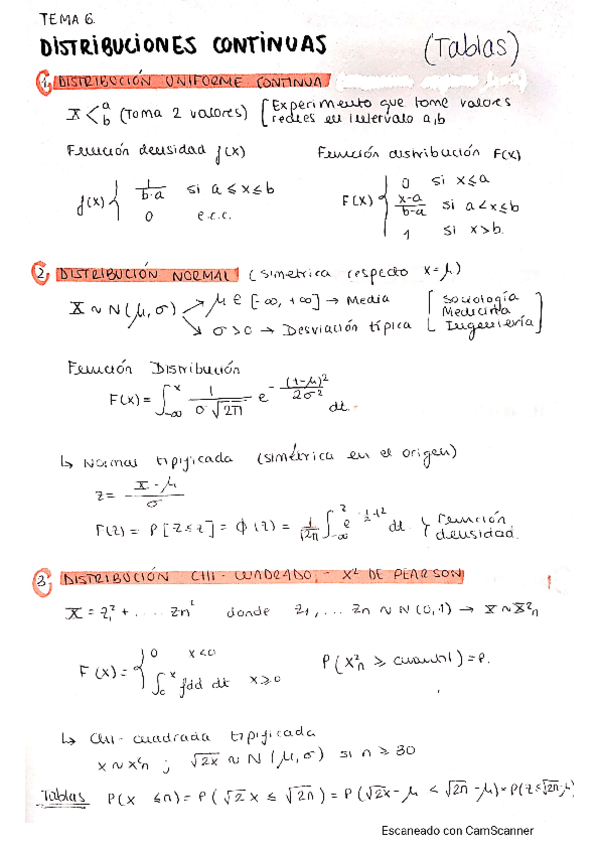 TEMA 6.
DISTRIBUCIONES CONTINUAS (Tablas)
1. DISTRIBUCIÓN UNIFORME CONTINUA
X < a b (Toma 2 valores) [Experimento que tome valores
reales en intervalo a,b
Función densidad f(x) Función distribución F(x)
f(x) { 1/b-a si a ≤ x ≤ b
0 e.c.c.
F(x) { 0 si x ≤ a
x-a/b-a si a < x ≤ b
1 si x > b.
2. DISTRIBUCIÓN NORMAL (simetrica respecto x=μ)
X ~ N(μ,σ) → μ ∈ [-∞, +∞] → Media [Sociología
Medicina
→ σ>0 → Desviación típica Ingeniería]
Función Distribución
F(x) = ∫_{-∞}^{x} 1/σ√2π e^{-(t-μ)²/2σ²} dt.
↳ Normal tipificada (simétrica en el origen)
z = X-μ/σ
F(z) = P[Z≤z] = Φ(z) = 1/√2π ∫_{-∞}^{z} e^{-1/2 t²} dt } Función
densidad.
3. DISTRIBUCIÓN CHI-CUADRADO - X² DE PEARSON
X = Z₁² + .... Zn² donde Z₁, ... Zn ~ N(0,1) → X ~ X²n
F(x) = { 0 x<0
∫_0^x dt x≥0
P(X²n ≥ cuantil) = P.
↳ Chi-cuadrada tipificada
x ~ x²n ; √2x ~ N(μ,σ) si n ≥ 30
Tablas P(X ≤ n) = P(√2x ≤ √2n) = P(√2x - μ < √2n - μ) = P(Z ≤ √2n - μ)
Escaneado con CamScanner